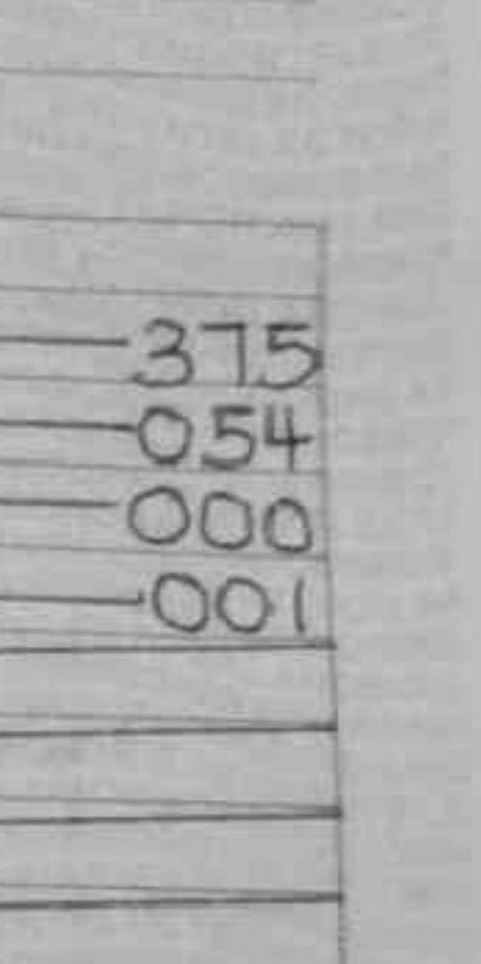 375
054
000
001